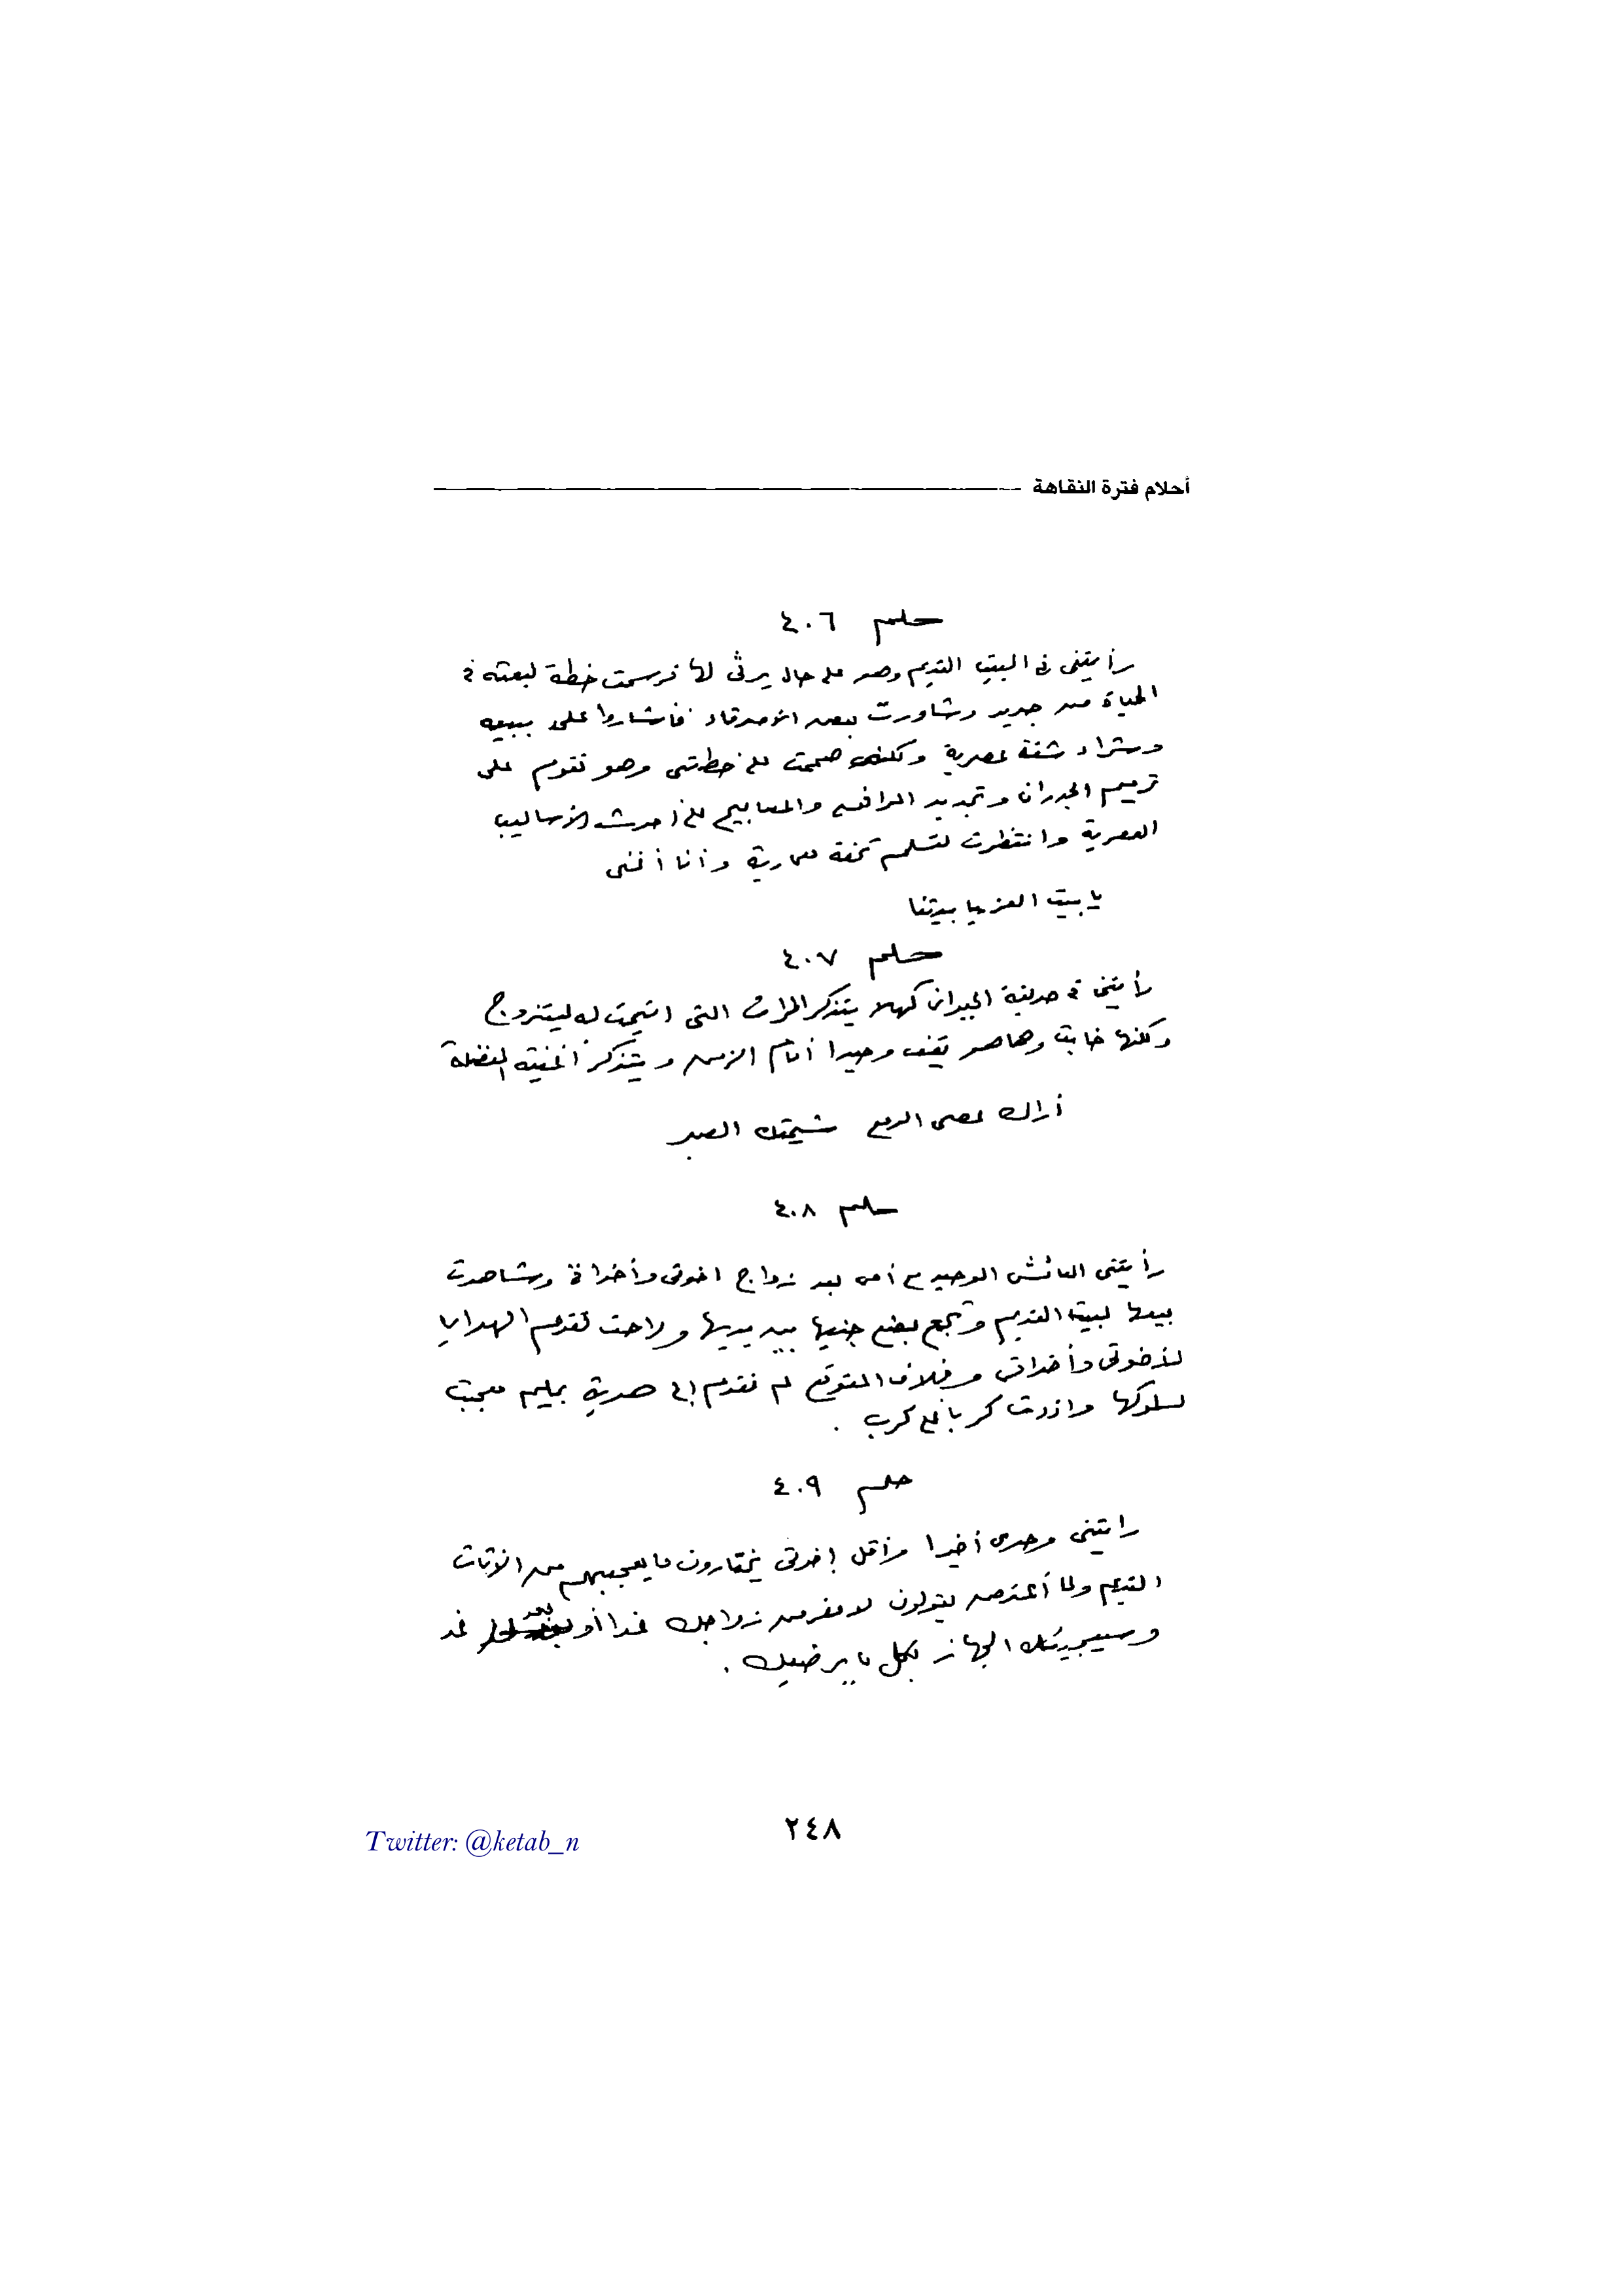 أحلام فترة النقاهة
حلم ٤٠٦
رأيتنى فى البيت القديم وهو على حال يرثى لها فرسمت خطة لبعثه فى
الحياة من جديد وشاورت بعض الأصدقاء فأشاروا على ببيعه
وشراء شقة عصرية ولكننى صممت على خطتى وهو تقوم على
ترميم الجدران وتجديد المرافق والمصابيح على أحدث الأساليب
العصرية وانتظرت لتسلم تحفة معمارية وأنا أغنى
يا بيت العز يا بيتنا
حلم ٤٠٧
رأيتنى فى حديقة الجيران كهلا يتذكر المرات التى اتيحت له ليتزوج
ولكنها خابت وها هو يقف وحيدا أمام الزمن ويتذكر أغنيته المفضلة
أراك عصى الدمع شيمتك الصبر
حلم ٤٠٨
رأيتنى العائش الوحيد مع أمى بعد زواج اخوتى وأخواتى وشاهدت
بيعها لبيته القديم وتجمع بضع جنيها بين يديها وراحت تقدم الهدايا
لأخوتى وأخواتى وخلاف المتوقع لم تقدم إلى هدية بمليم فعجبت
لسلوكها وازددت كربا على كرب .
حلم ٤٠٩
رايتنى وحدى أخيرا وأقبل إخوتى يختارون ما يعجبهم من الأثاث
القديم ولما أعترض يقولون لا مفر من زواجك غدا أو بعد غد
وسيجيئك الجهاز بكل ما يرضيك .
٢٤٨
Twitter: @ketab_n